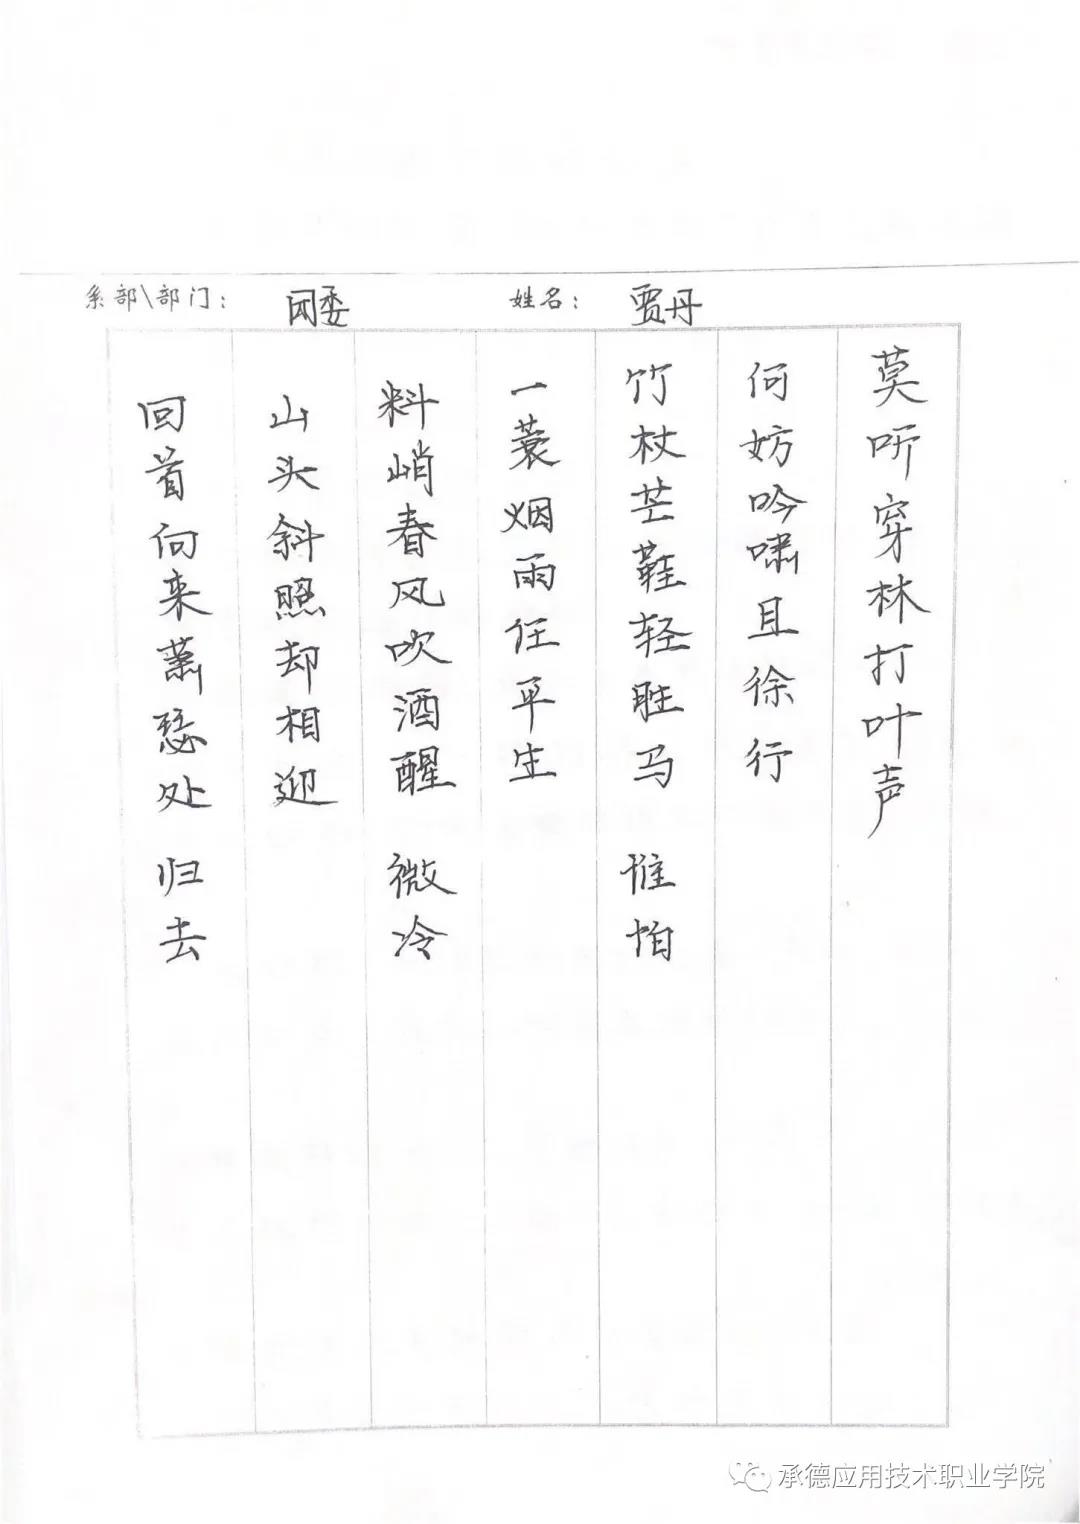 系部\部门： 团委 姓名： 贾丹
莫听穿林打叶声
何妨吟啸且徐行
竹杖芒鞋轻胜马 谁怕
一蓑烟雨任平生
料峭春风吹酒醒 微冷
山头斜照却相迎
回首向来萧瑟处 归去
承德应用技术职业学院